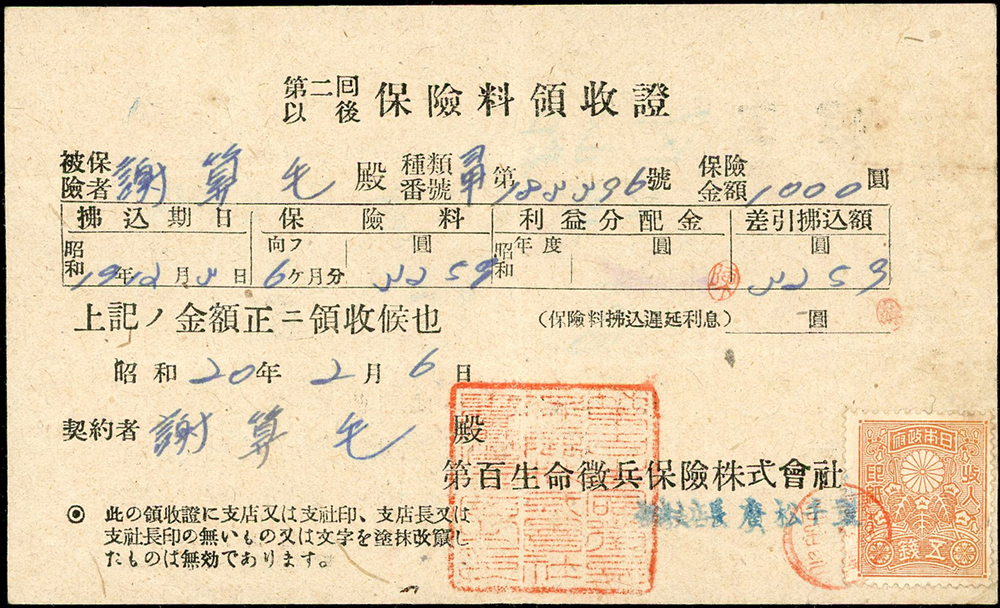 第二回以後 保險料領收證
被保險者 謝算毛 殿 種類番號 第183396號 保險金額 1000圓
拂込期日 保險料 利益分配金 差引拂込額
昭和19年12月3日 向フ6ヶ月分 圓 3259 昭和 年度 圓 圓 3259
上記ノ金額正ニ領收候也 (保險料拂込遲延利息) 圓
昭和20年2月6日
契約者 謝算毛 殿
第百生命徵兵保險株式會社
長 廣松千
◉ 此の領收證に支店又は支社印、支店長又は
支社長印の無いもの又は文字を塗抹改竄し
たものは無効であります。
日本政府
收入印紙
五錢